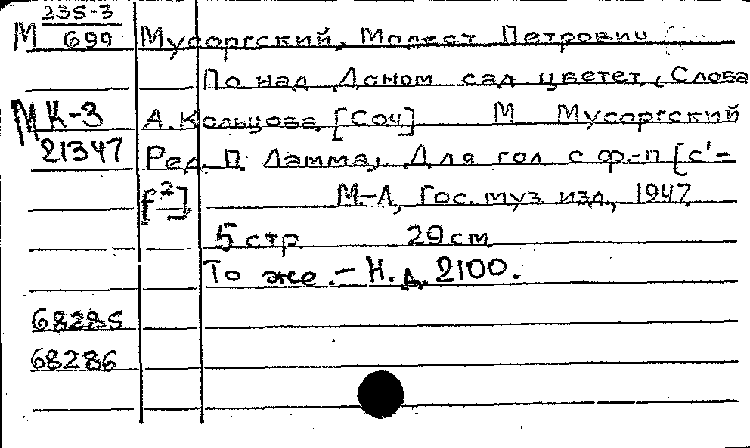 М 235-3
699 Мусоргский, Модест Петрович
По над Доном сад цветет, Слова
МК-3 А. Кольцова [Соч] М Мусоргский
21347 Ред. П Ламма, Для гол с ф.-п [c'-
f²] М-Л, Гос. муз изд., 1947
5 стр 29 см
То же. - Н.д. 2100.
68285
68286